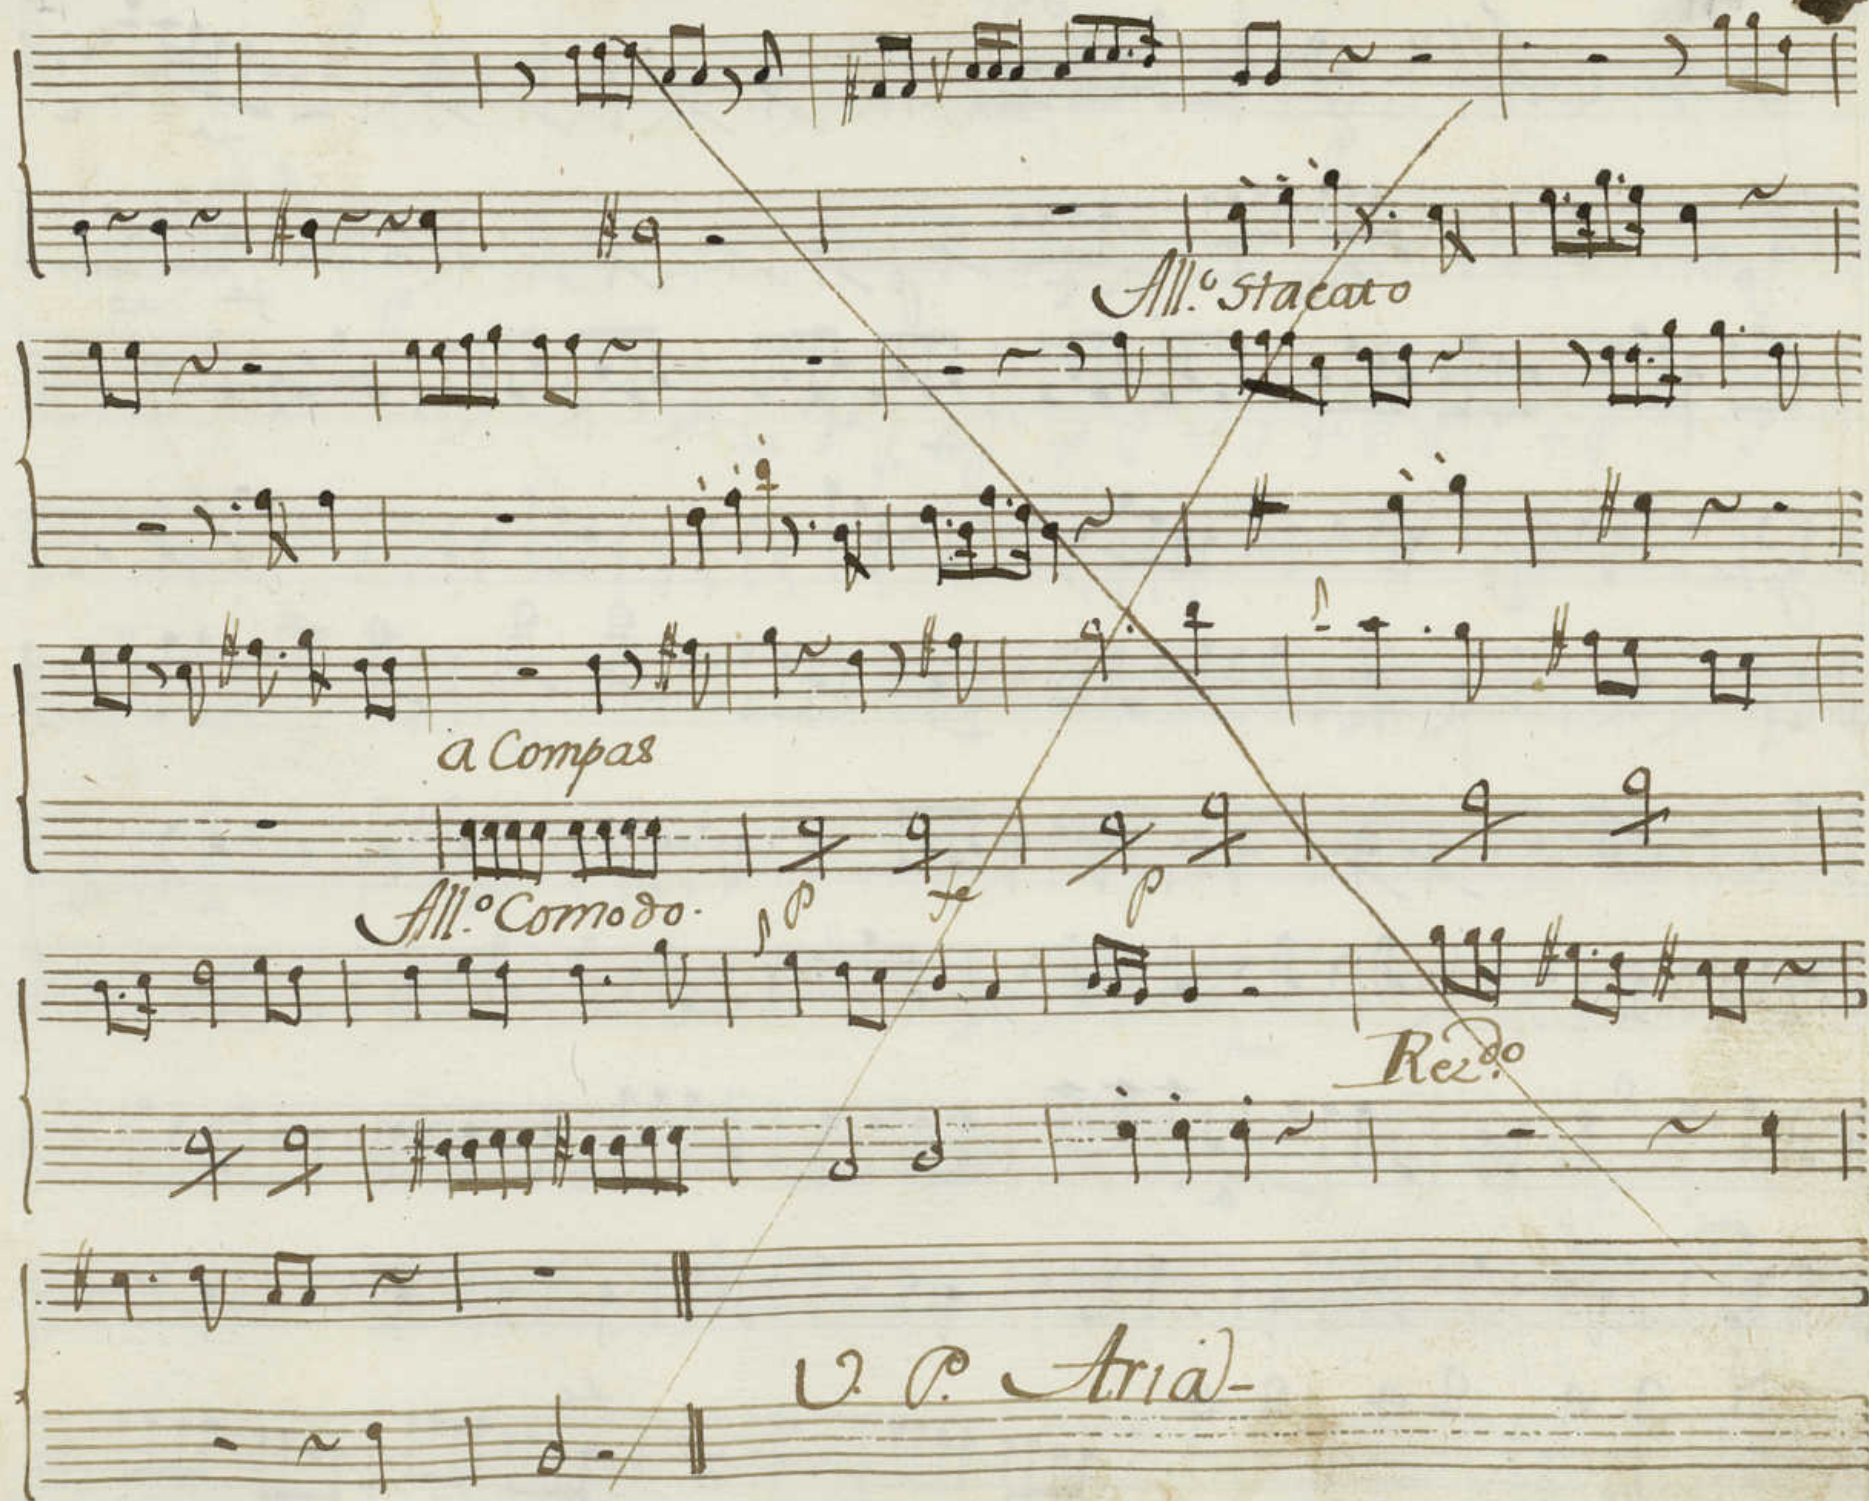 All.º Stacato
a Compas
All.º Comodo.
P fe P
Rez.do
V. P. Aria-